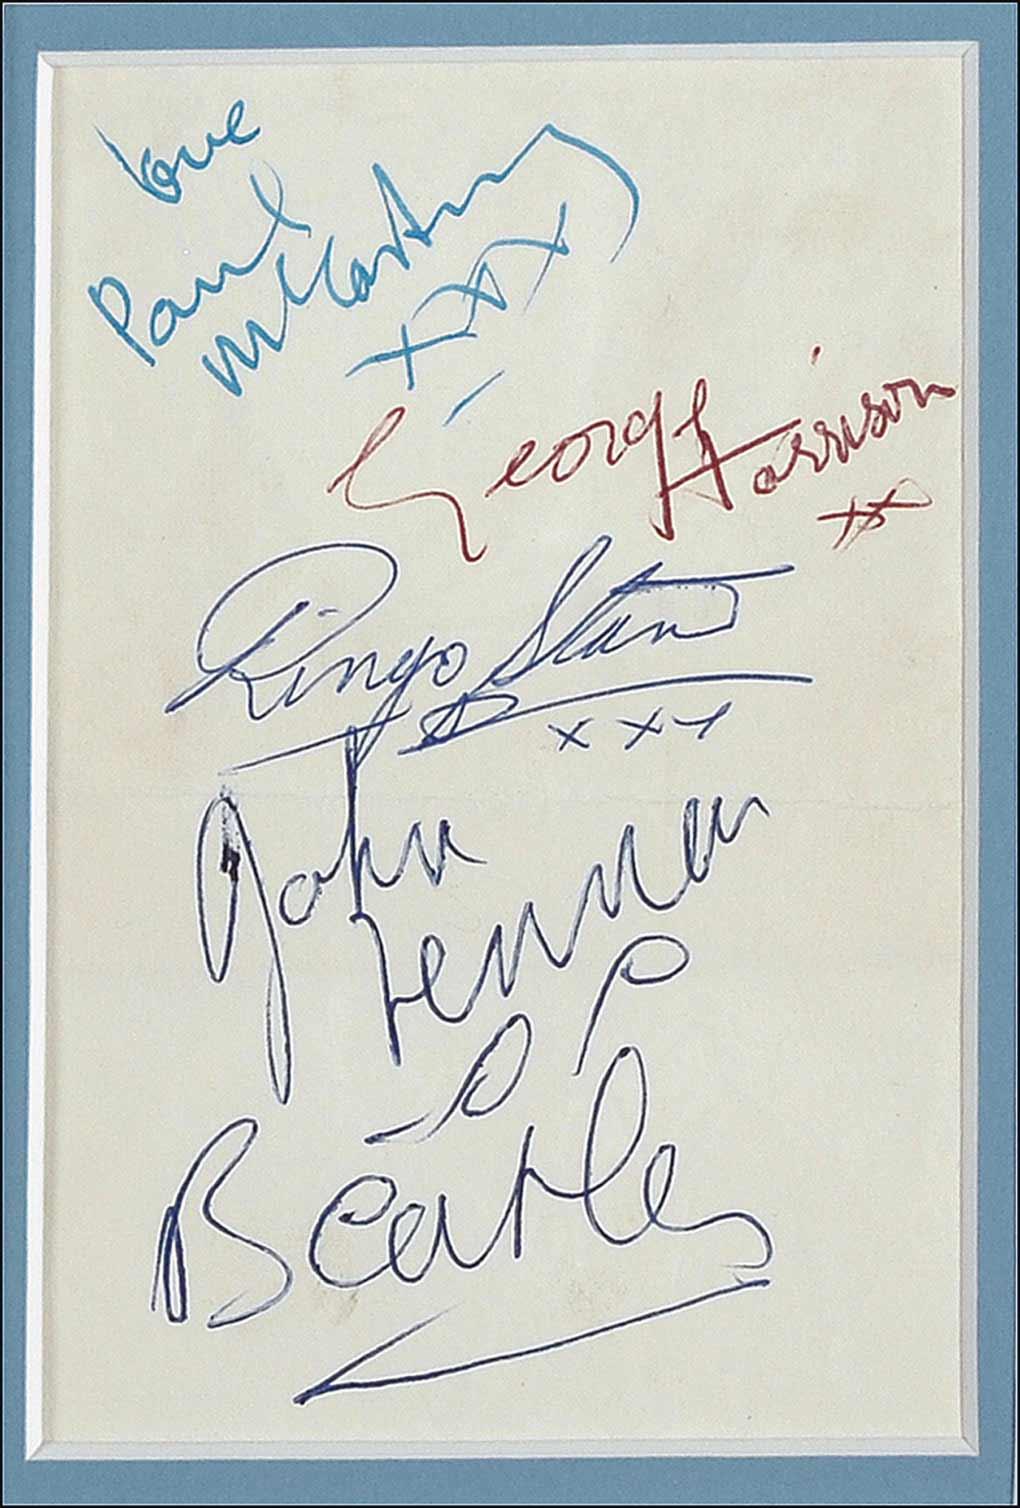 love
Paul
McCartney
xxx
George Harrison
xx
Ringo Starr
xxx
John
Lennon
Beatles